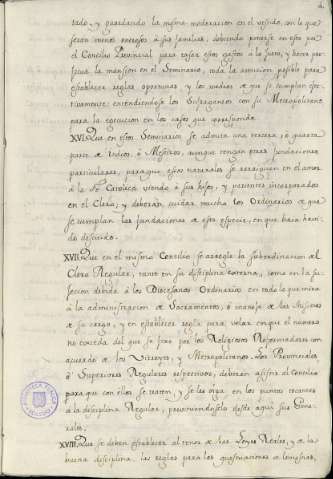 tado, y guardando la misma moderacion en el vestido, con lo que
serán menos onerosos á sus familias, debiendo ponerse en esto por
el Concilio Provincial para tasar estos gastos à lo justo, y hacer per-
petua la mansion en el Seminario, toda la atencion posible para
establecer reglas oportunas, y los medios de que se cumplan efec-
tivamente entendiendose los Sufraganeos con su Metropolitano
para la egecucion en los casos que
XVI. Que en estos Seminarios se admita una tercera, ó quarta
parte de Indios, ó Mestizos, aunque tengan otras fundaciones
particulares, para que estos naturales se arraiguen en el amor
à la Fé Catolica viendo á sus hijos, y parientes incorporados
en el Clero; y deberán cuidar mucho los Ordinarios de que
se cumplan las fundaciones de esta especie, en que haya havi-
do descuido.
XVII. Que en el mismo Concilio se arregle la subordinacion del
Clero Regular, tanto en su disciplina externa, como en la su-
gecion debida à los Diocesanos Ordinarios en todo lo que mira
à la administracion de Sacramentos, ó manejo de las Misiones
de su cargo, y en establecer regla para velar en que el numero
no exceda del que se fixe por los Religiosos Reformadores con
acuerdo de los Virreyes, y Metropolitanos. Los Provinciales
ó Superiores Regulares respectivos, deberán asistir al Concilio
para que con ellos se traten, y se les oiga en los puntos tocantes
à la disciplina Regular, previniendoselo desde aqui sus Gene-
rales.
XVIII. Que se deben establecer al tenor de las Leyes Reales, y de la
buena disciplina, las reglas para los